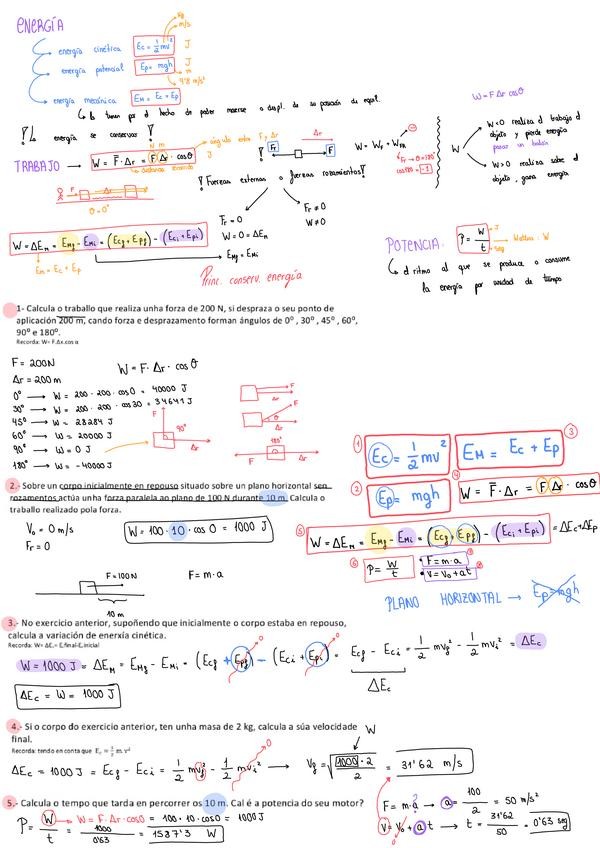 ENERGÍA
kg
m/s
energía cinética Ec = 1/2 mv² J
energía potencial Ep = mgh J
m
9'8 m/s²
energía mecánica EM = Ec + Ep
↳ la tienen por el hecho de poder moverse o despl. de su posición de equil.
¡! energía se conserva !
TRABAJO → W = F̄·Δr = F Δr · cosθ J
N m
ángulo entre F, Δr
distancia recorrida
F Δr
θ = 0°
Fr Δr F
W = WF + WFR
Fr → θ = 180°
cos180 = -1
¡ Fuerzas externas o fuerzas rozamientos !
Fr = 0
W = 0 = ΔEM
EMf = EMi
Fr ≠ 0
W ≠ 0
W = ΔEM = EMf - EMi = (Ecf + Epf) - (Eci + Epi)
Em = Ec + Ep
Princ. conserv. energía
W = F Δr cosθ
W
W<0 realiza el trabajo el objeto y pierde energía
W>0 realiza sobre el objeto, gana energía
POTENCIA.
P = W/t
J
seg
Wattios. W
↳ el ritmo al que se produce o consume
la energía por unidad de tiempo
1- Calcula o traballo que realiza unha forza de 200 N, si despraza o seu ponto de
aplicación 200 m, cando forza e desprazamento forman ángulos de 0º , 30º , 45º , 60º,
90º e 180º.
Recorda: W= F.Δx.cos α
F = 200N W = F · Δr · cosθ
Δr = 200 m
0° → W = 200 · 200 · cos0 = 40000 J
30° → W = 200 · 200 · cos30 = 34641 J
45° → W = 28284 J
60° → W = 20000 J
90° → W = 0 J
180° → W = -40000 J
F
90°
Δr
F
F
θ
Δr
180°
F Δr
2.- Sobre un corpo inicialmente en repouso situado sobre un plano horizontal sen
rozamentos actúa unha forza paralela ao plano de 100 N durante 10 m. Calcula o
traballo realizado pola forza.
V₀ = 0 m/s
Fr = 0
W = 100 · 10 · cos 0 = 1000 J
F = 100N F = m·a
10 m
① Ec = 1/2 mv²
EM = Ec + Ep ③
② Ep = mgh
④ W = F̄·Δr = F Δr · cosθ
⑤ W = ΔEM = EMf - EMi = (Ecf + Epf) - (Eci + Epi) = ΔEc + ΔEp
⑥ P = W/t
• F = m·a ⑦
• V = V₀ + at ⑧
PLANO HORIZONTAL → Ep = mgh
3.- No exercicio anterior, supoñendo que inicialmente o corpo estaba en repouso,
calcula a variación de enerxía cinética.
Recorda: W= ΔEc= Ecfinal-Ecinicial
W = 1000 J = ΔEM = EMf - EMi = (Ecf + Epf) - (Eci + Epi) = Ecf - Eci = 1/2 mvf² - 1/2 mvi² = ΔEc
0 0
ΔEc
ΔEc = W = 1000 J
4.- Si o corpo do exercicio anterior, ten unha masa de 2 kg, calcula a súa velocidade
final.
Recorda: tendo en conta que Ec = 1/2 m.v²
ΔEc = 1000 J = Ecf - Eci = 1/2 mvf² - 1/2 mvi² → Vf = √(1000·2/2) = 31'62 m/s
0
W
5.- Calcula o tempo que tarda en percorrer os 10 m. Cal é a potencia do seu motor?
P = W/t → W = F·Δr·cos0 = 100·10·cos0 = 1000 J
= 1000/0'63 = 1587'3 W
F = m·a → a = 100/2 = 50 m/s²
?
V = V₀ + a t → t = 31'62/50 = 0'63 seg
0